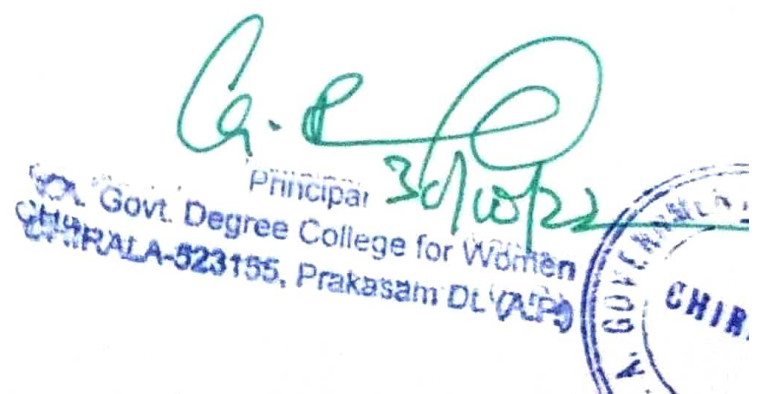 Principal
30/10/22
Govt. Degree College for Women
CHIRALA-523155, Prakasam Dt. (A.P.)
A. GOVERNMEN
CHIR